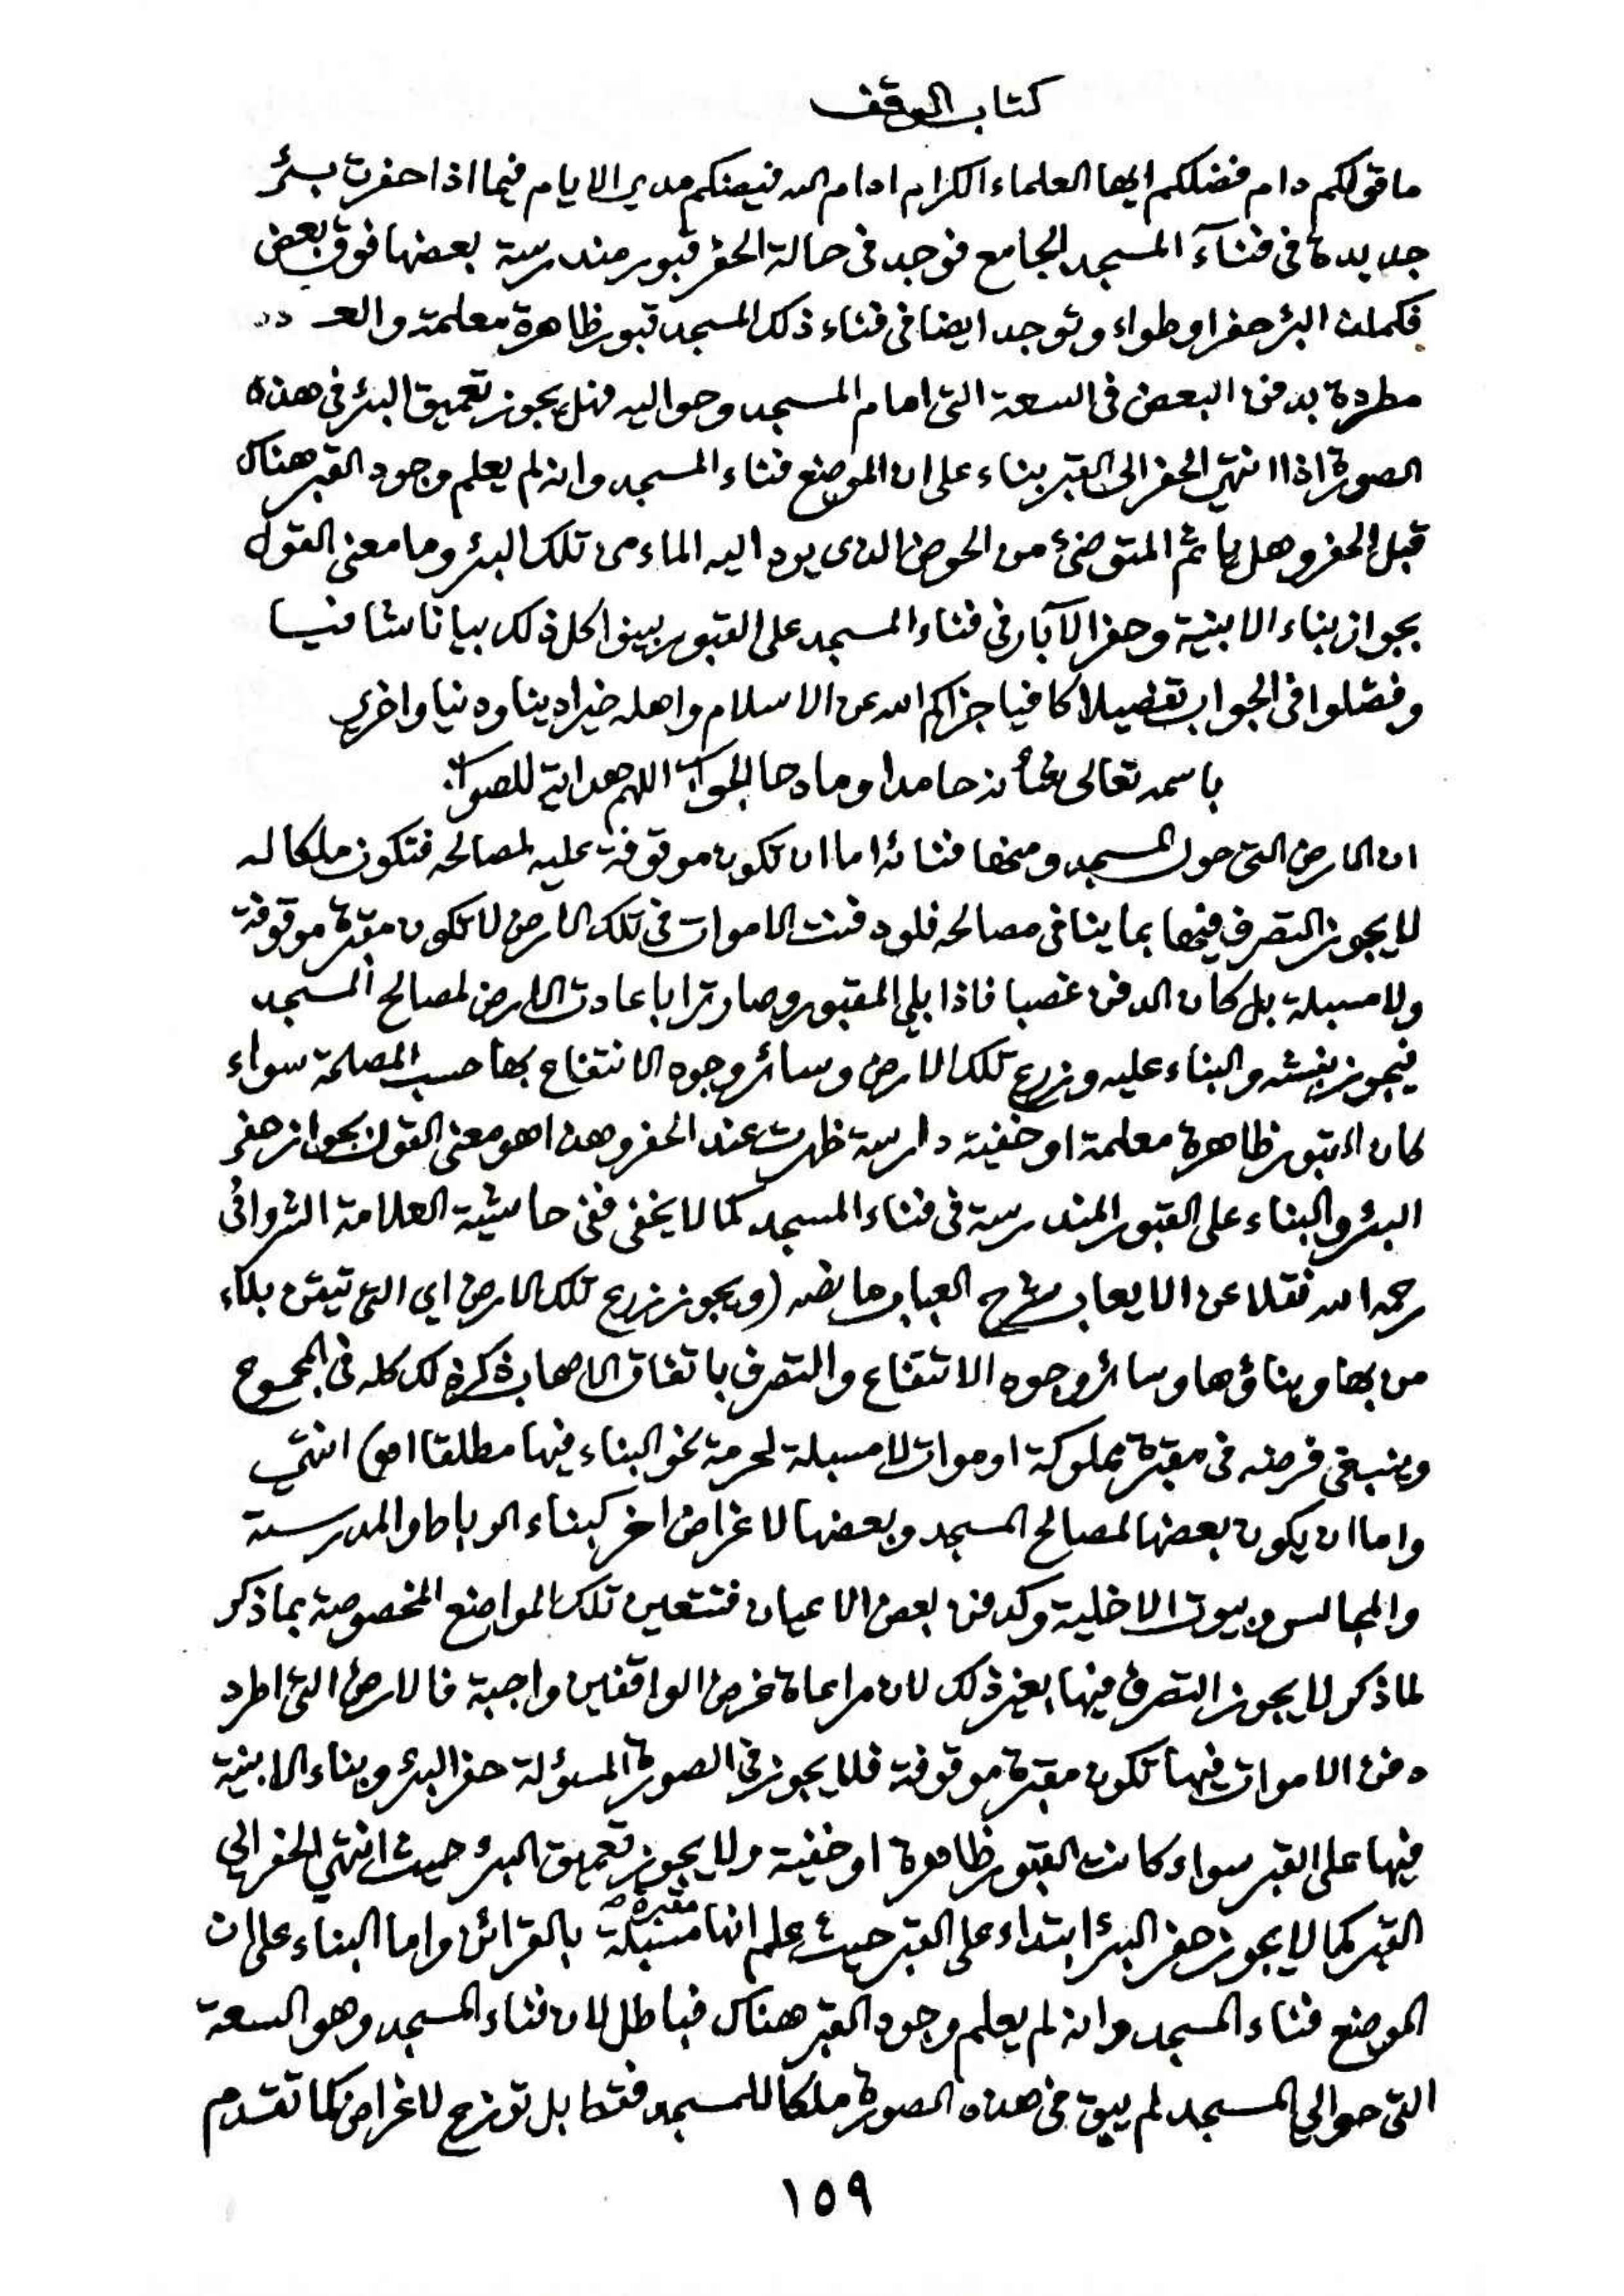 كتاب الوقف
ما قولكم دام فضلكم ايها العلماء الكرام ادام الله فيضكم مدى الايام فيما اذا حفرت بئر
جديدة في فنآء المسجد الجامع فوجد في حالة الحفر قبور مندرسة بعضها فوق بعض
فكملت البئر حفرا وطواء وتوجد ايضا في فناء ذلك المسجد قبور ظاهرة معلمة والعـ دة
مطردة بدفن البعض في السعة التي امام المسجد وحواليه فهل يجوز تعميق البئر في هذه
الصورة اذا انتهى الحفر الى القبر بناء على ان الموضع فناء المسجد وانه لم يعلم وجود القبر هناك
قبل الحفر وهل ياثم المتوضئ من الحوض الذي يرد اليه الماء من تلك البئر وما معنى القول
بجواز بناء الابنية وحفر الآبار في فناء المسجد على القبور بينوا كل ذلك بيانا شافيا
وفصّلوا في الجواب تفصيلا كافيا جزاكم الله عن الاسلام واهله خيرا دينا ودنيا واخرى
باسمه تعالى شأنه حامدا ومادحا الجواب اللهم هداية للصواب
ان الارض التي حول المسجد ومنها فنائه اما ان تكون موقوفة عليه لمصالحه فتكون ملكا له
لا يجوز التصرف فيها بما ينافي مصالحه فلو دفنت الاموات في تلك الارض لا تكون مقبرة موقوفة
ولا مسبلة بل كان الدفن غصبا فاذا بلي المقبور وصار ترابا عادت الارض لمصالح المسجد
فيجوز نبشه والبناء عليه وزرع تلك الارض وسائر وجوه الانتفاع بها حسب المصلحة سواء
كان القبور ظاهرة معلمة او خفية دارسة ظهرت عند الحفر وهذا هو معنى القول بجواز حفر
البئر والبناء على القبور المندرسة في فناء المسجد كما لا يخفى ففي حاشية العلامة الشرواني
رحمه الله نقلا عن الايعاب شرح العباب ما نصه (ويجوز زرع تلك الارض اي التي تيقن بلاء
من بها وبناؤها وسائر وجوه الانتفاع والتصرف باتفاق الاصحاب ذكر ذلك كله في المجموع
وينبغي فرضه في مقبرة مملوكة او موات لا مسبلة لحرمة نحو البناء فيها مطلقا اهـ) انتهى
واما ان يكون بعضها لمصالح المسجد وبعضها لاغراض اخر كبناء الرباط والمدرسة
والمجالس وبيوت الاخلية وكدفن بعض الاعيان فتتعين تلك المواضع المخصوصة بما ذكر
لما ذكر لا يجوز التصرف فيها بغير ذلك لان مراعاة غرض الواقفين واجبة فالارض التي اطرد
دفن الاموات فيها تكون مقبرة موقوفة فلا يجوز في الصورة المسؤلة حفر البئر وبناء الابنية
فيها على القبر سواء كانت القبور ظاهرة او خفية ولا يجوز تعميق البئر حيث انتهى الحفر الى
القبر كما لا يجوز حفر البئر ابتداء على القبر حيث علم انها مقبرة مسبلة بالقرائن واما البناء على ان
الموضع فناء المسجد وانه لم يعلم وجود القبر هناك فباطل لان فناء المسجد وهو السعة
التي حوالي المسجد لم يبق في هذه الصورة ملكا للمسجد فقط بل توزع لاغراض كما تقدم
١٥٩